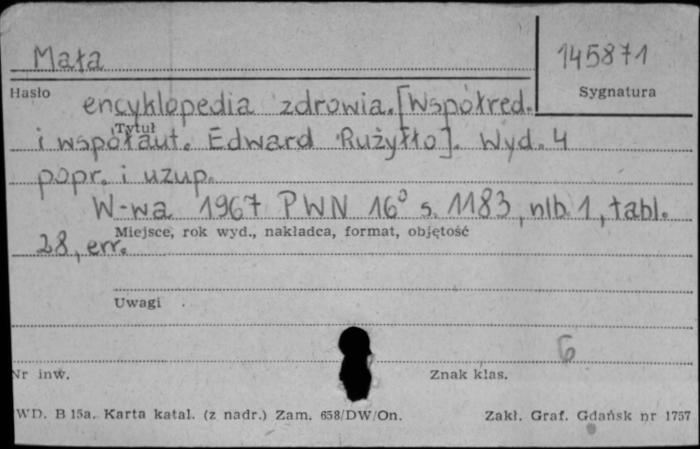 Mała
145871
Hasło
Sygnatura
encyklopedia zdrowia. [Współred.
Tytuł
i współaut. Edward Rużyłło]. Wyd. 4
popr. i uzup.
W-wa 1967 PWN 16° s. 1183, nlb. 1, tabl.
Miejsce, rok wyd., nakładca, format, objętość
28, err.
Uwagi
6
Nr inw.
Znak klas.
WD. B 15a. Karta katal. (z nadr.) Zam. 658/DW/On.
Zakł. Graf. Gdańsk nr 1757